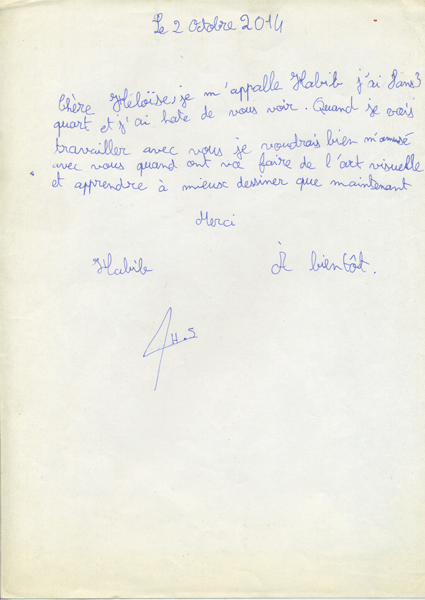 Le 2 octobre 2014
Chère Héloïse, je m'appalle Habib j'ai 8ans 3
quart et j'ai hate de vous voir. Quand je vais
travailler avec vous je voudrais bien m'amusé
avec vous quand ont va faire de l'art visuelle
et apprendre à mieux dessiner que maintenant
Merci
Habib À bientôt.
H.S